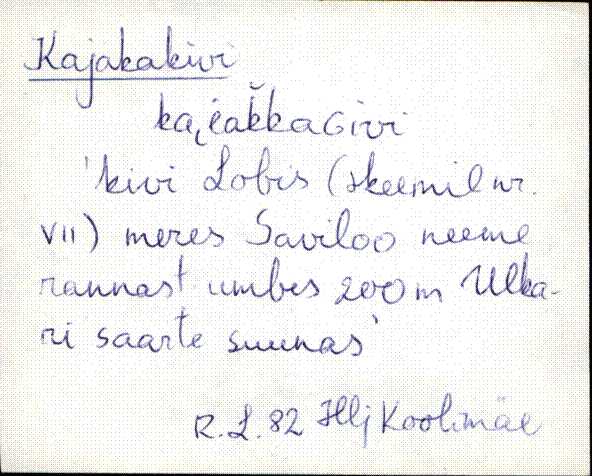 Kajakakivi
kai̯akkaGivi
'kivi Lobis (skeemil nr.
VII) meres Saviloo neeme
rannast umbes 200 m Ulka-
ri saarte suunas'
R. L. 82 Illj Koolimäe